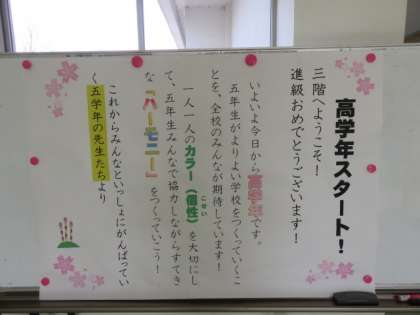 高学年スタート！
三階へようこそ！
進級おめでとうございます！
いよいよ今日から高学年です。
五年生がよりよい学校をつくっていくこ
とを、全校のみんなが期待しています！
一人一人のカラー（個性）を大切にし
こせい
て、五年生みんなで協力しながらすてき
な「ハーモニー」をつくっていこう！
これからみんなといっしょにがんばってい
く五学年の先生たちより